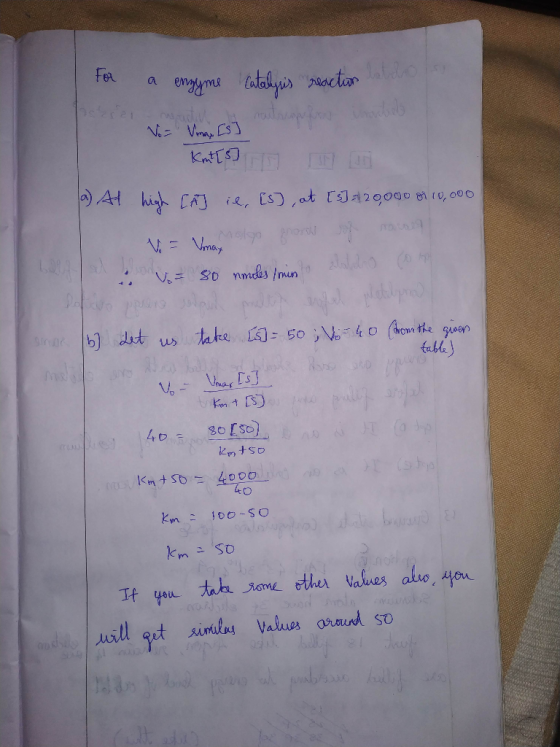 For a enzyme Catalysis reaction
V₀ = Vmax [S] / Km+[S]
a) At high [A] i.e, [S], at [S]=20,000 or 10,000
V₀ = Vmax
∴ V₀ = 80 nmoles/min
b) Let us take [S] = 50 ; V₀ = 40 (from the given
table)
V₀ = Vmax [S] / Km + [S]
40 = 80 [50] / Km+50
Km + 50 = 4000 / 40
Km = 100-50
Km = 50
If you take some other Values also, you
will get similar Values around 50